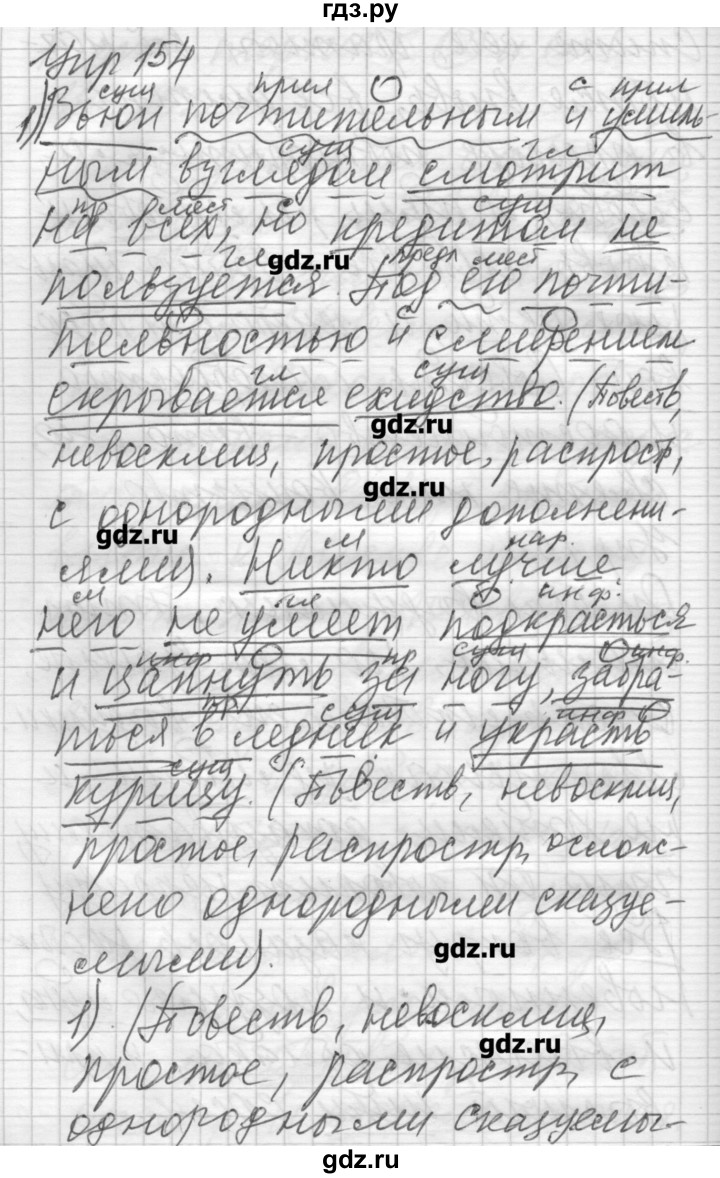 гдз.ру
Упр 154
сущ прил с прил
1) Вьюн почтительным и умиль-
сущ гл
ным взглядом смотрит
пр мест с сущ
на всех, но кредитом не
гл gdz.ru предл мест
пользуется. Под его почти-
с
тельностью и смирением
гл сущ
скрывается ехидство. (Повеств,
gdz.ru
невосклиц, простое, распрост,
gdz.ru
с однородными дополнени-
gdz.ru
м нар.
ями). Никто лучше
м гл инф.
него не умеет подкрасться
инф пр сущ инф.
и цапнуть за ногу, забра-
пр сущ инф
ться в ледник и украсть
сущ
курицу. (Повеств, невосклиц,
простое, распростр, ослож-
нено однородными сказуе-
мыми).
gdz.ru
1). (Повеств, невосклиц,
gdz.ru
простое, распростр, с
однородными сказуемы-
gdz.ru